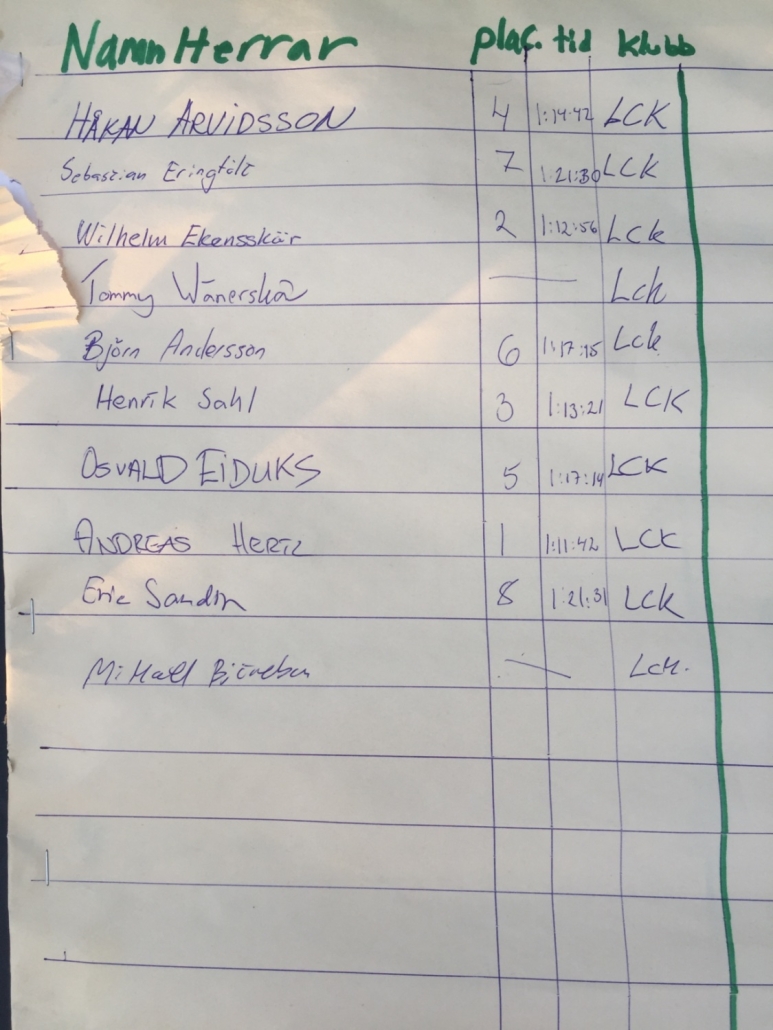 Namn Herrar plac. tid klubb
HÅKAN ARVIDSSON 4 1:14:42 LCK
Sebastian 7 1:21:30 LCK
Wilhelm Ekensskär 2 1:12:56 Lck
Tommy Lck
Björn Andersson 6 1:17:15 Lck
Henrik Sahl 3 1:13:21 LCK
OSVALD EIDUKS 5 1:17:14 LCK
ANDREAS HERTZ 1 1:11:42 LCK
Eric Sandin 8 1:21:31 LCK
Mikael LCK.